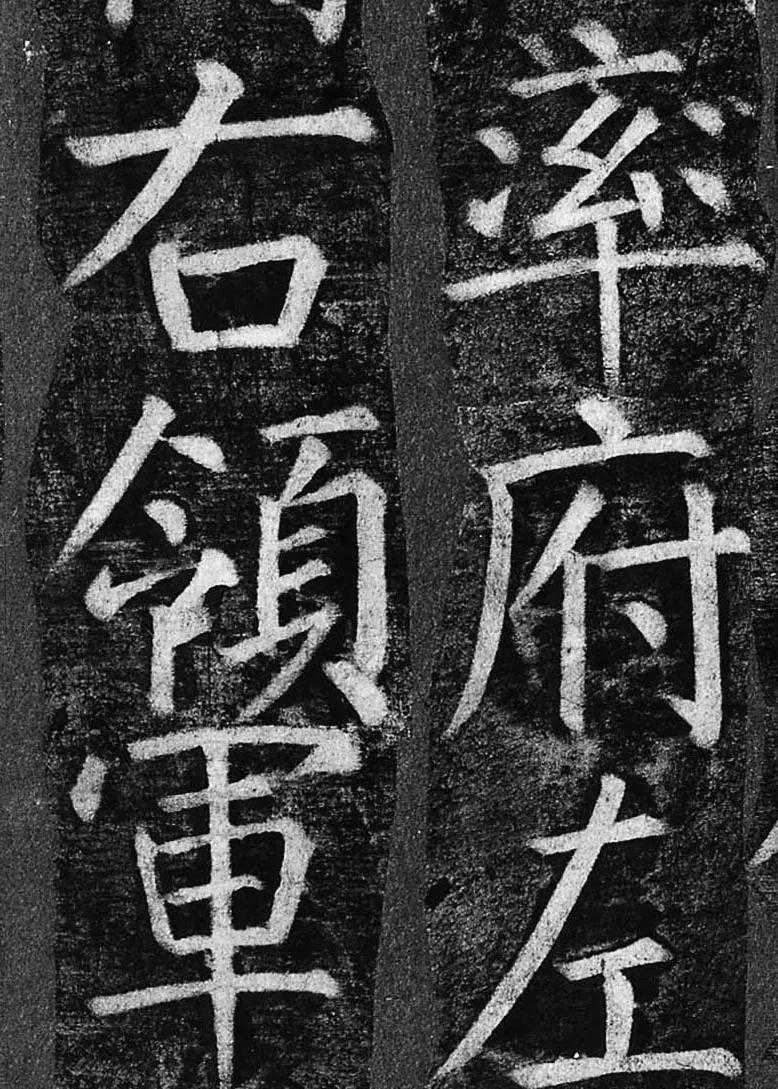 率府左
右領軍